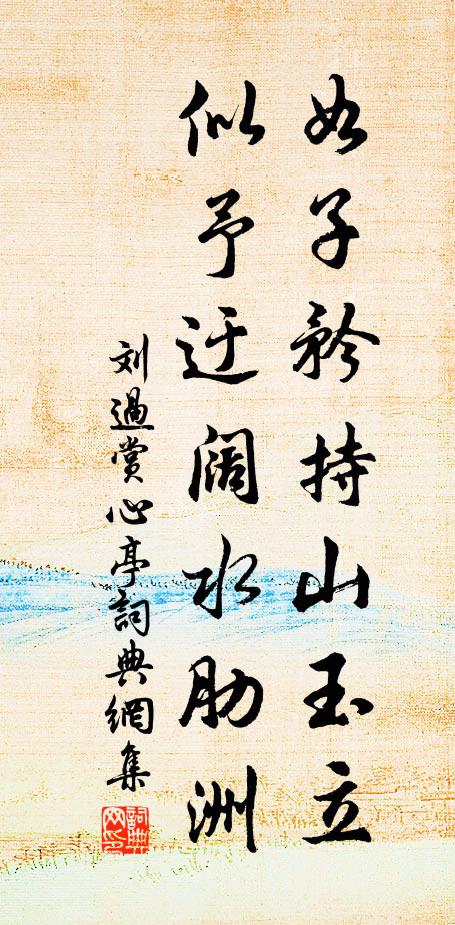 如子矜持山玉立
似予迂阔水肋洲
刘過賞心亭詞典網集
詞典網印